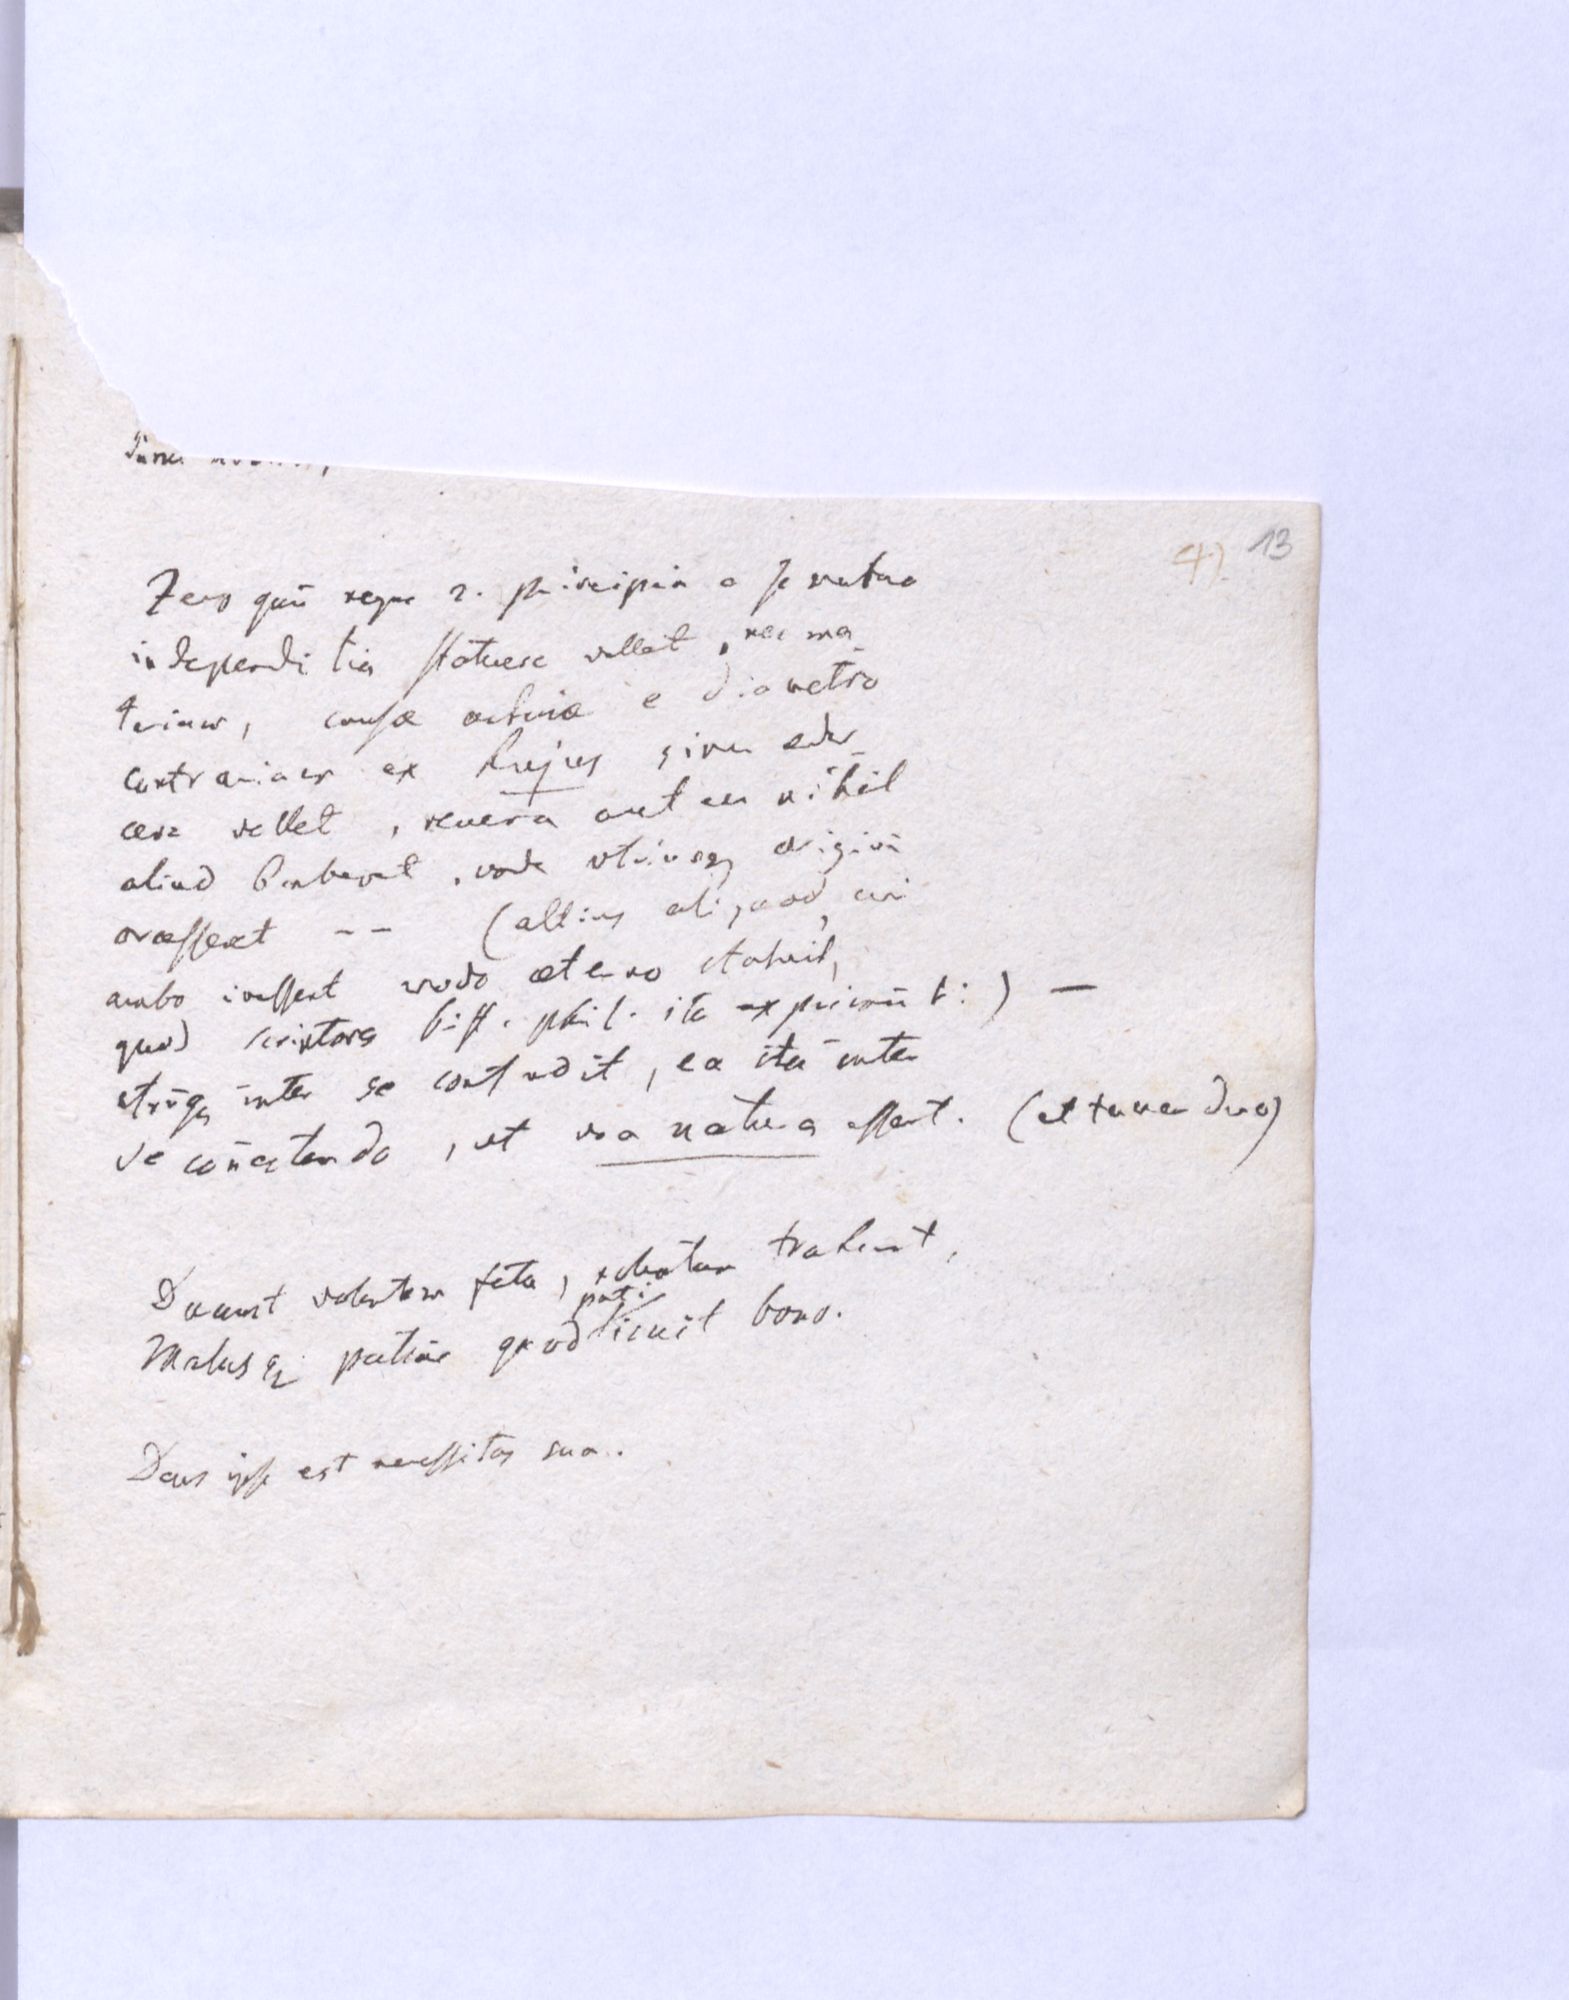 4). 13
Zeno quū neque 2. principia a se mutuo
independētia statuere vellet, nec ma-
teriam, causæ activæ e diametro
contrariam ex hujus sinu edu-
cere vellet, revera autem nihil
aliud haberet, unde utriusq origini
præesset -- (altius aliquod, cui
ambo inessent modo æterno statuit,
quod scriptores hist. phil. ita exprimūt:) —
utrūq inter se contudit, ea ita inter
se coñectendo, ut una natura essent. (et tamen duo)
Ducunt volentem fata, nolentem trahunt,
Malusq patiar quod pati licuit bono.
Deus ipse est necessitas sua.